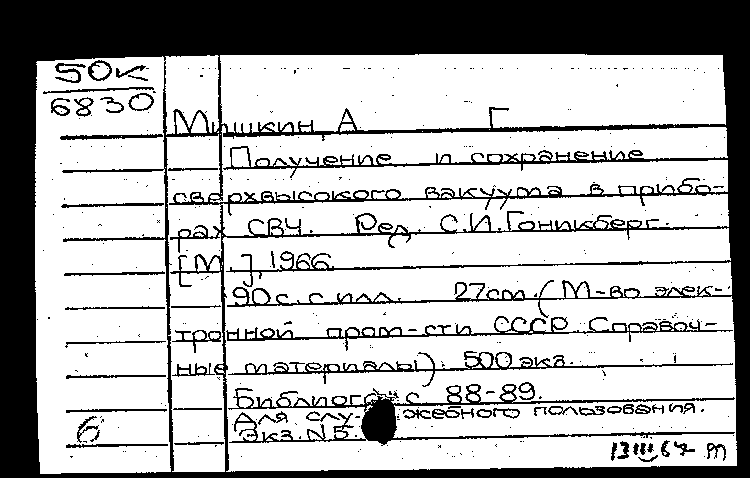 50к
6830
Мишкин, А Г
Получение и сохранение
сверхвысокого вакуума в прибо-
рах СВЧ. Ред. С.И.Гоникберг.
[М.], 1966.
90с. с илл. 27cm. (М-во элек-
тронной пром-сти СССР Справоч-
ные материалы). 500 экз.
Библиогр. с 88-89.
Для служебного пользования.
Экз. N 5.
6
13 III 67